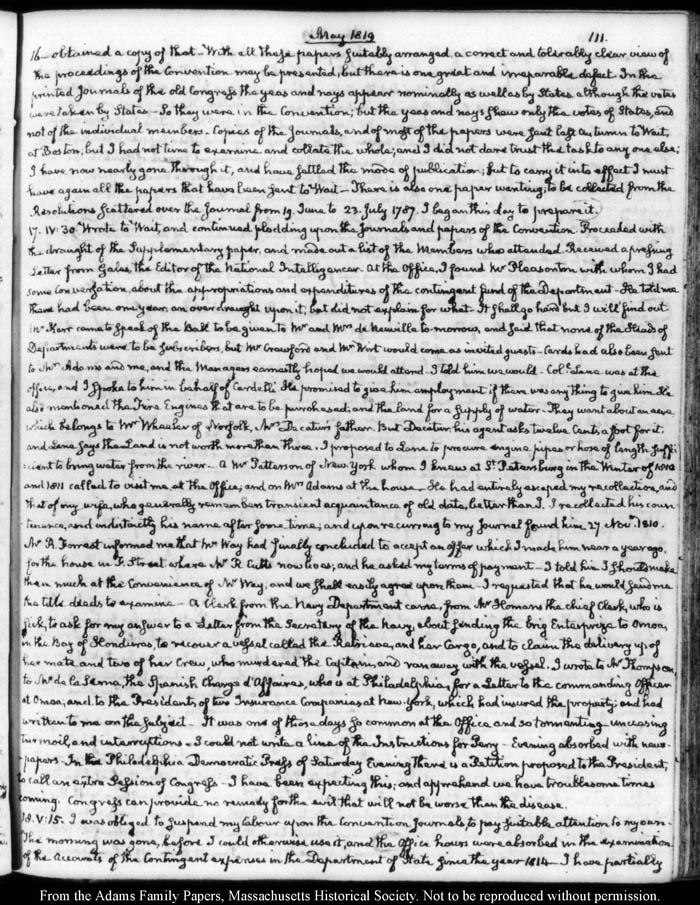 May 1819 111.
16 obtained a copy of that - With all these papers suitably arranged, a correct and tolerably clear view of
the proceedings of the Convention may be presented, but there is one great and irreparable defect. In the
printed Journals of the old Congress the yeas and nays appear nominally as well as by States although the votes
were taken by States - So they were in the Convention; but the yeas and nays shew only the votes of States, and
not of the individual members - Copies of the Journals, and of most of the papers were sent last Autumn to Wait,
at Boston; but I had not time to examine and collate the whole; and I did not dare trust the task to any one else;
I have now nearly gone through it, and have settled the mode of publication; but to carry it into effect I must
have again all the papers that have been sent to Wait - There is also one paper wanting, to be collected from the
Resolutions scattered over the Journal from 19. June to 23. July 1787. I began this day to prepare it.
17. IV:30 Wrote to Wait, and continued plodding upon the Journals and papers of the Convention. Proceeded with
the draught of the Supplementary paper, and made out a list of the Members who attended. Received a pressing
Letter from Gales, the Editor of the National Intelligencer. At the Office, I found Mr Pleasonton with whom I had
some Conversation, about the appropriations and expenditures of the contingent fund of the Department - He told me
there had been one year, an overdraught upon it, but did not explain for what - It shall go hard but I will find out
Mr Kerr came to speak of the Ball to be given to Mr and Mrs de Neuville to-morrow, and said that none of the Heads of
Departments were to be subscribers, but Mr Crawford and Mr Wirt would come as invited guests - Cards had also been sent
to Mrs Adams and me, and the Managers earnestly hoped we would attend. I told him we would - Coll. Lane was at the
office, and I spoke to him in behalf of Cardelli. He promised to give him employment if there was any thing to give him. He
also mentioned the Fire Engines that are to be purchased; and the land for a supply of water - They want about an acre
which belongs to Mr Wheeler of Norfolk, Mrs Decatur's father. But Decatur, his agent asks twelve Cents a foot for it;
and Lane says the Land is not worth more than three. I proposed to Lane to procure engine pipes or hose of length suffi
cient to bring water from the river - A Mr Patterson of New-York whom I knew at St. Petersburg in the Winter of 1810
and 1811 called to visit me, at the Office; and on Mrs Adams at the house - He had entirely escaped my recollection, and
that of my wife, who generally remembers transient acquaintance of old date, better than I. I recollected his coun-
tenance, and indistinctly his name after some time; and upon recurring to my Journal found him 27 Novr. 1810.
Mr R. Forrest informed me that Mr Way had finally concluded to accept an offer which I made him near a year ago,
for the house in F. Street where Mr R Cutts now lives; and he asked my terms of payment - I told him I should make
them much at the Convenience of Mr Way, and we shall easily agree upon them - I requested that he would send me
the title deeds to examine - A Clerk from the Navy Department came, from Mr Homans the chief Clerk, who is
sick, to ask for my answer to a Letter from the Secretary of the Navy, about sending the brig Enterprize to Omoa,
in the Bay of Honduras, to recover a vessel called the Retrieve, and her Cargo, and to claim the delivery up, of
her mate and two of her Crew, who murdered the Captain, and ran away with the vessel. I wrote to Mr Thompson,
to Mr de la Serna, the Spanish Chargé d'Affaires, who is at Philadelphia, for a Letter to the commanding Officer
at Omoa; and to the Presidents, of two Insurance Companies at New-York, which had insured the property; and had
written to me on the subject - It was one of those days so common at the Office and so tormenting - unceasing
turmoil, and interruptions - I could not write a line of the Instructions for Perry - Evening absorbed with news-
papers - In the Philadelphia Democratic Press of Saturday Evening there is a Petition proposed to the President,
to call an extra Session of Congress - I have been expecting this; and apprehend we have troublesome times
coming. Congress can provide no remedy for the evil that will not be worse than the disease.
18. V:15. I was obliged to suspend my labour upon the Convention Journals, to pay suitable attention to my own -
The morning was gone, before I could otherwise use it, and the Office hours were absorbed in the examination
of the Accounts of the Contingent expenses in the Department of State since the year 1814 - I have partially
From the Adams Family Papers, Massachusetts Historical Society. Not to be reproduced without permission.